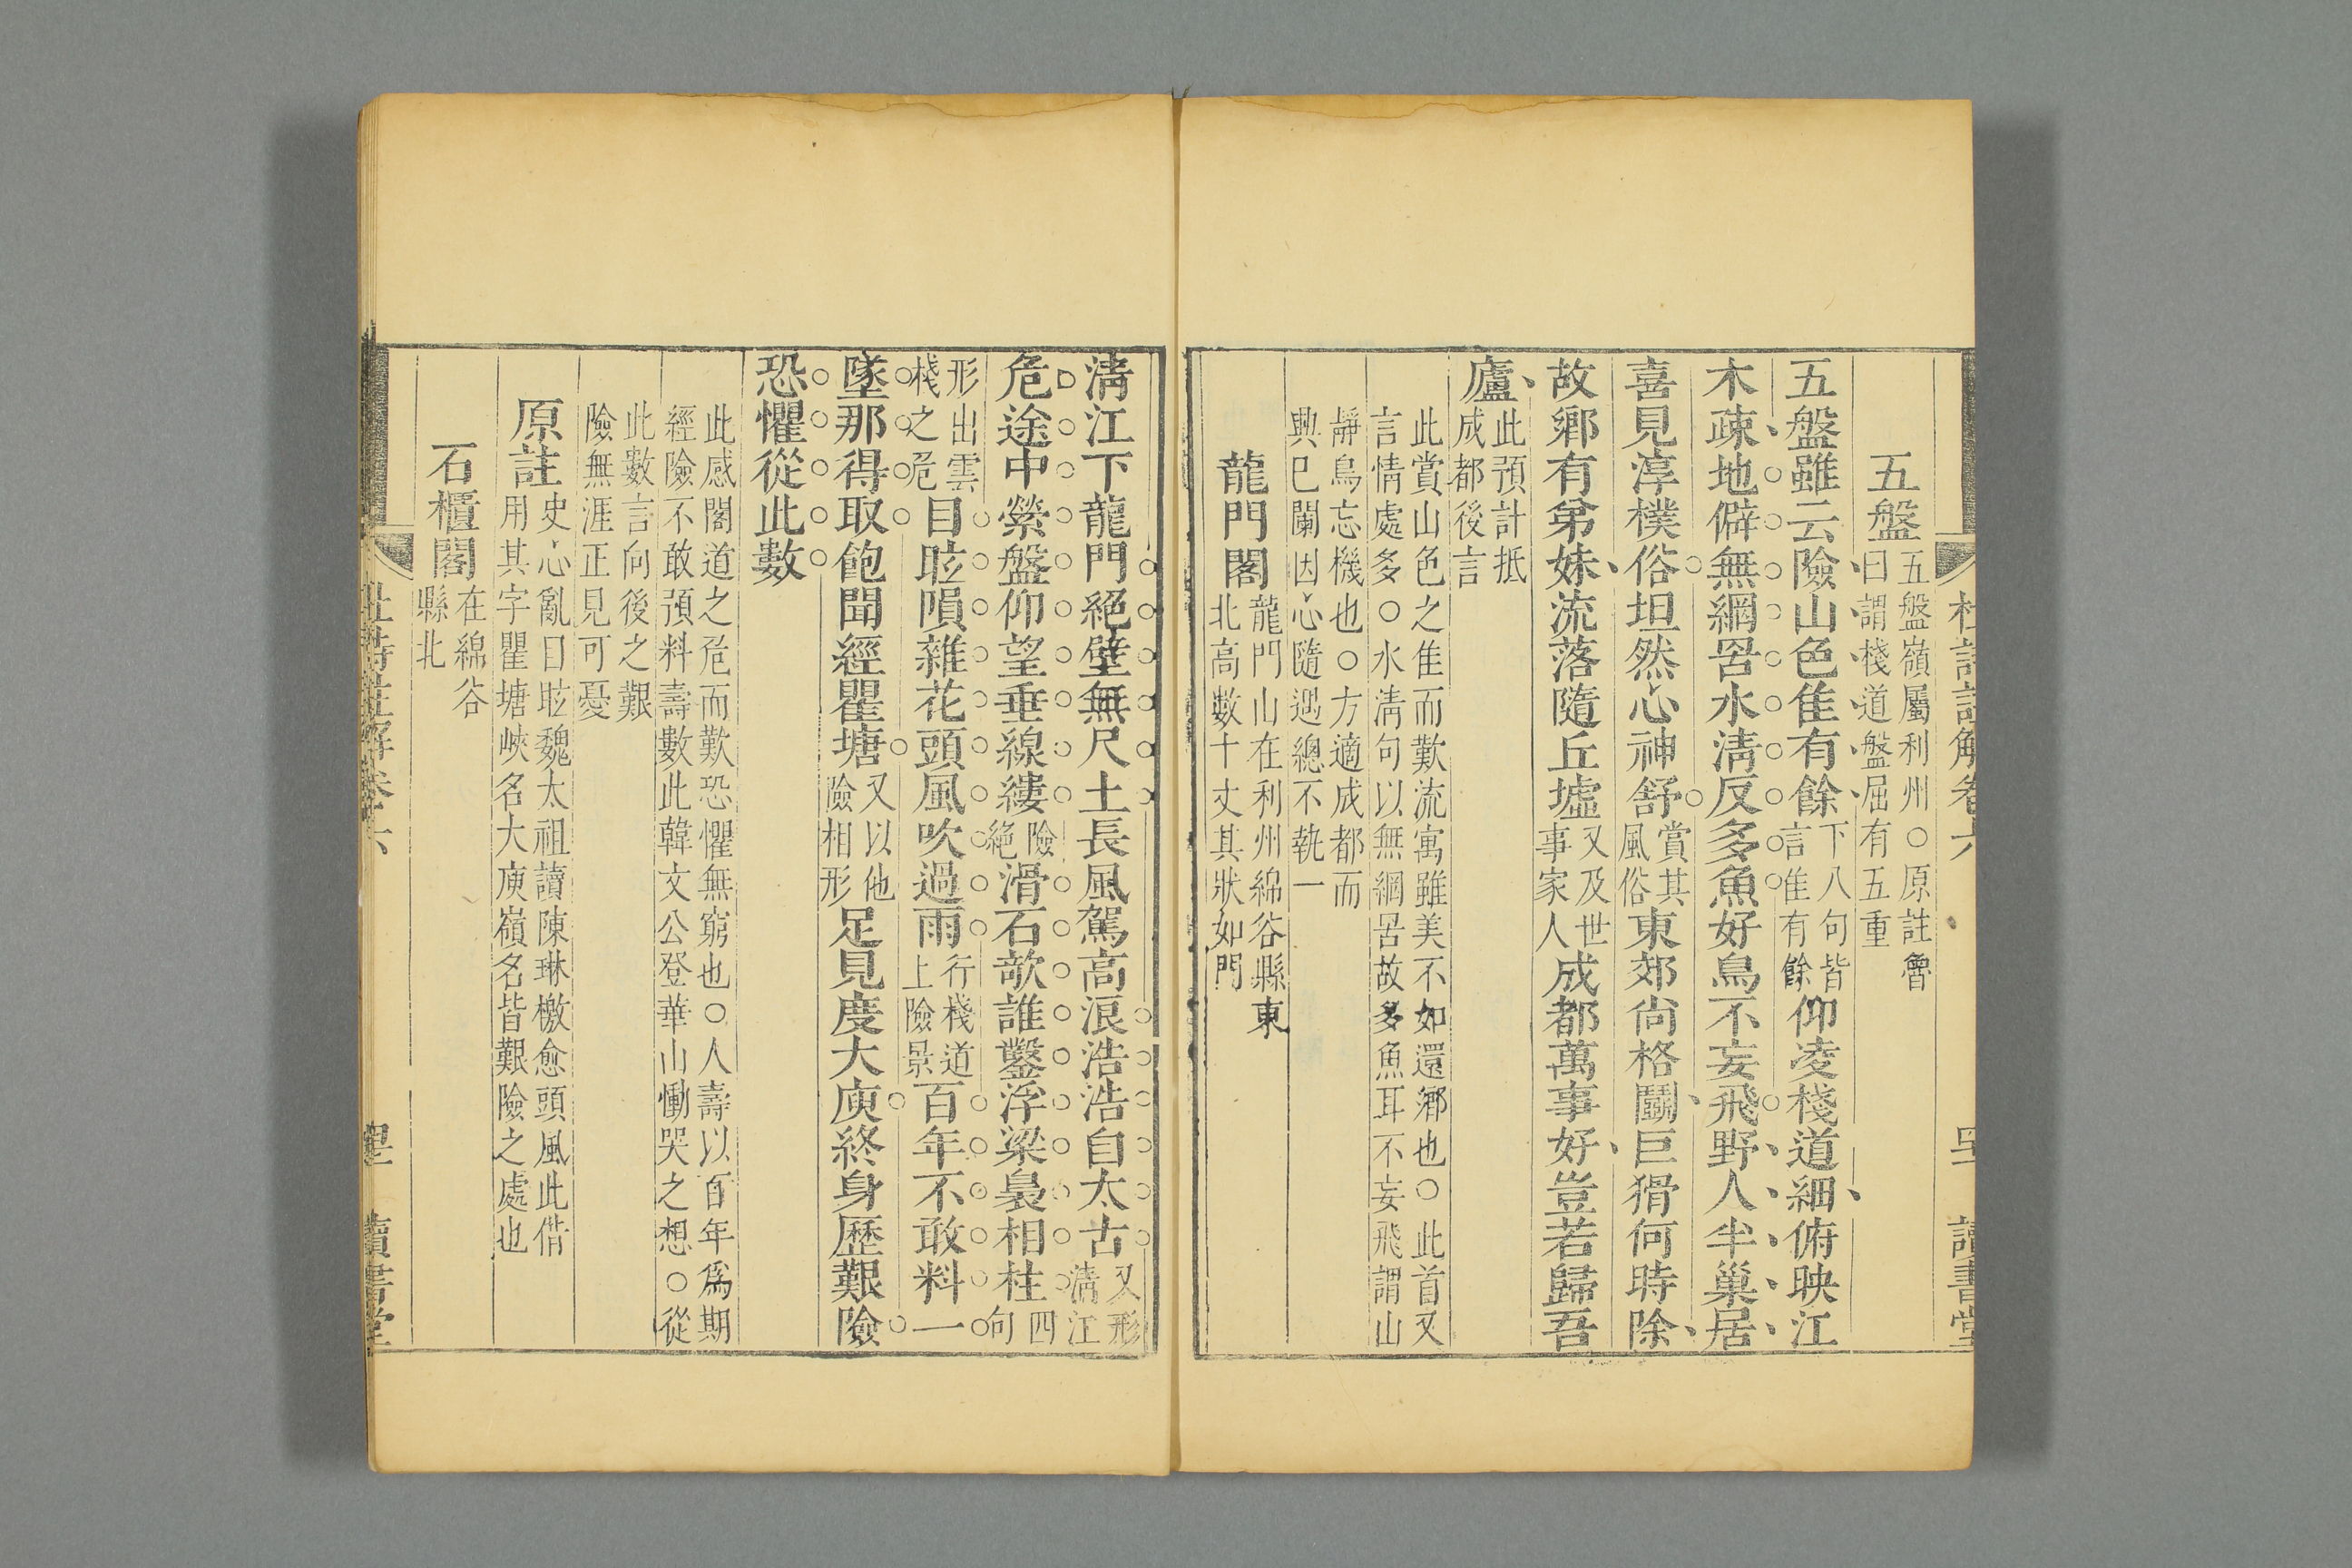 杜詩註解卷六
讀書堂
五盤五盤嶺屬利州○原註魯
曰謂棧道盤屈有五重
五盤雖云險山色佳有餘下八句皆
言佳有餘仰凌棧道細俯映江
木疎地僻無網罟水清反多魚好鳥不妄飛野人半巢居
喜見淳樸俗坦然心神舒賞其
風俗東郊尚格鬭巨猾何時除
故鄉有弟妹流落隨丘墟又及世
事家人成都萬事好豈若歸吾
廬此預計抵
成都後言
此賞山色之佳而歎流寓雖美不如還鄉也○此首又
言情處多○水清句以無網罟故多魚耳不妄飛謂山
靜鳥忘機也○方適成都而
興已闌因心隨遇總不執一
龍門閣龍門山在利州綿谷縣東
北高數十丈其狀如門
清江下龍門絕壁無尺土長風駕高浪浩浩自太古又形
清江
危途中縈盤仰望垂線縷險
絕滑石欹誰鑿浮梁裊相柱四
句
形出雲
棧之危目眩隕雜花頭風吹過雨行棧道
上險景百年不敢料一
墜那得取飽聞經瞿塘又以他
險相形足見度大庾終身歷艱險
恐懼從此數
此感閣道之危而歎恐懼無窮也○人壽以百年為期
經險不敢預料壽數此韓文公登華山慟哭之想○從
此數言向後之艱
險無涯正見可憂
原註史心亂目眩魏太祖讀陳琳檄愈頭風此借
用其字瞿塘峽名大庾嶺名皆艱險之處也
石櫃閣在綿谷
縣北
杜詩註解卷六
讀書堂